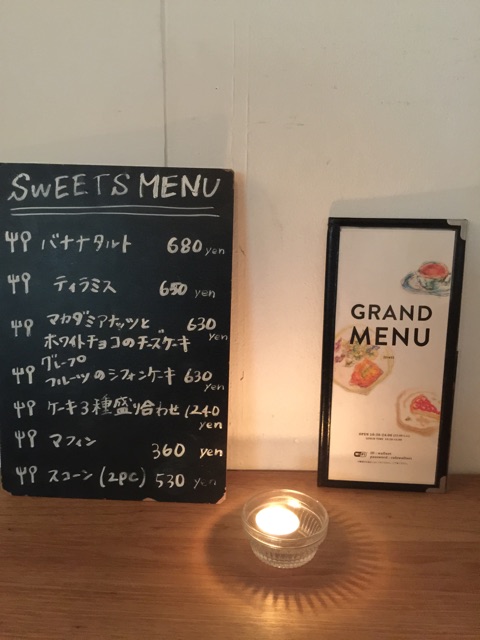 SWEETS MENU
バナナタルト 680 yen
ティラミス 650 yen
マカダミアナッツと 630 yen
ホワイトチョコのチーズケーキ
グレープ
フルーツのシフォンケーキ 630 yen
ケーキ3種盛り合わせ 1240 yen
マフィン 360 yen
スコーン (2PC) 530 yen
GRAND
MENU